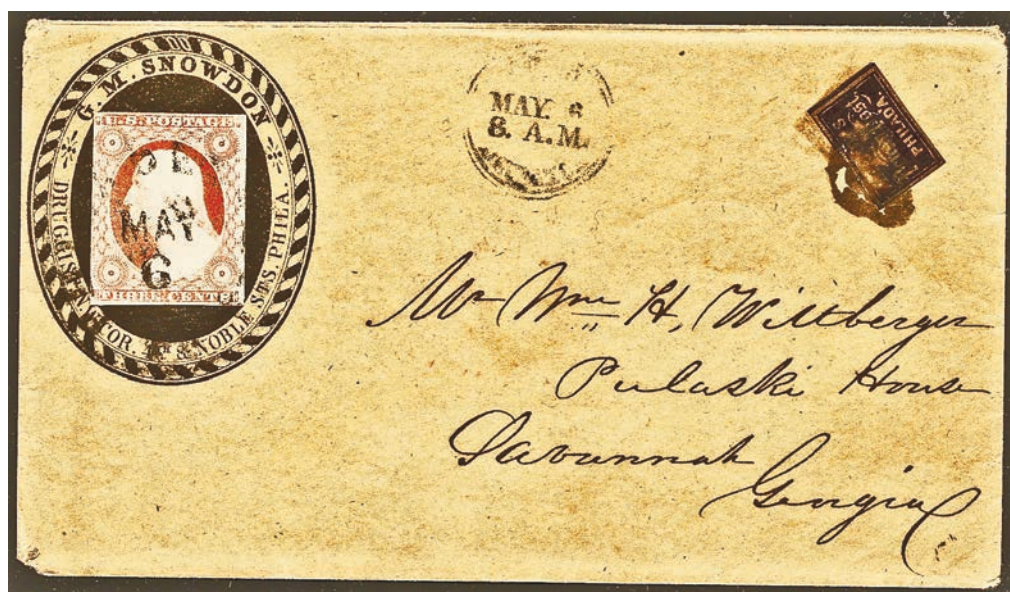 G. M. SNOWDON
DRUGGIST N.E. COR. 4TH & NOBLE STS. PHILA.
U.S. POSTAGE
MAY
6
THREE CENTS
MAY. 6
8. A.M.
PHILADA
Mr Wm H, Wiltberger
Pulaski House
Savannah
Georgia